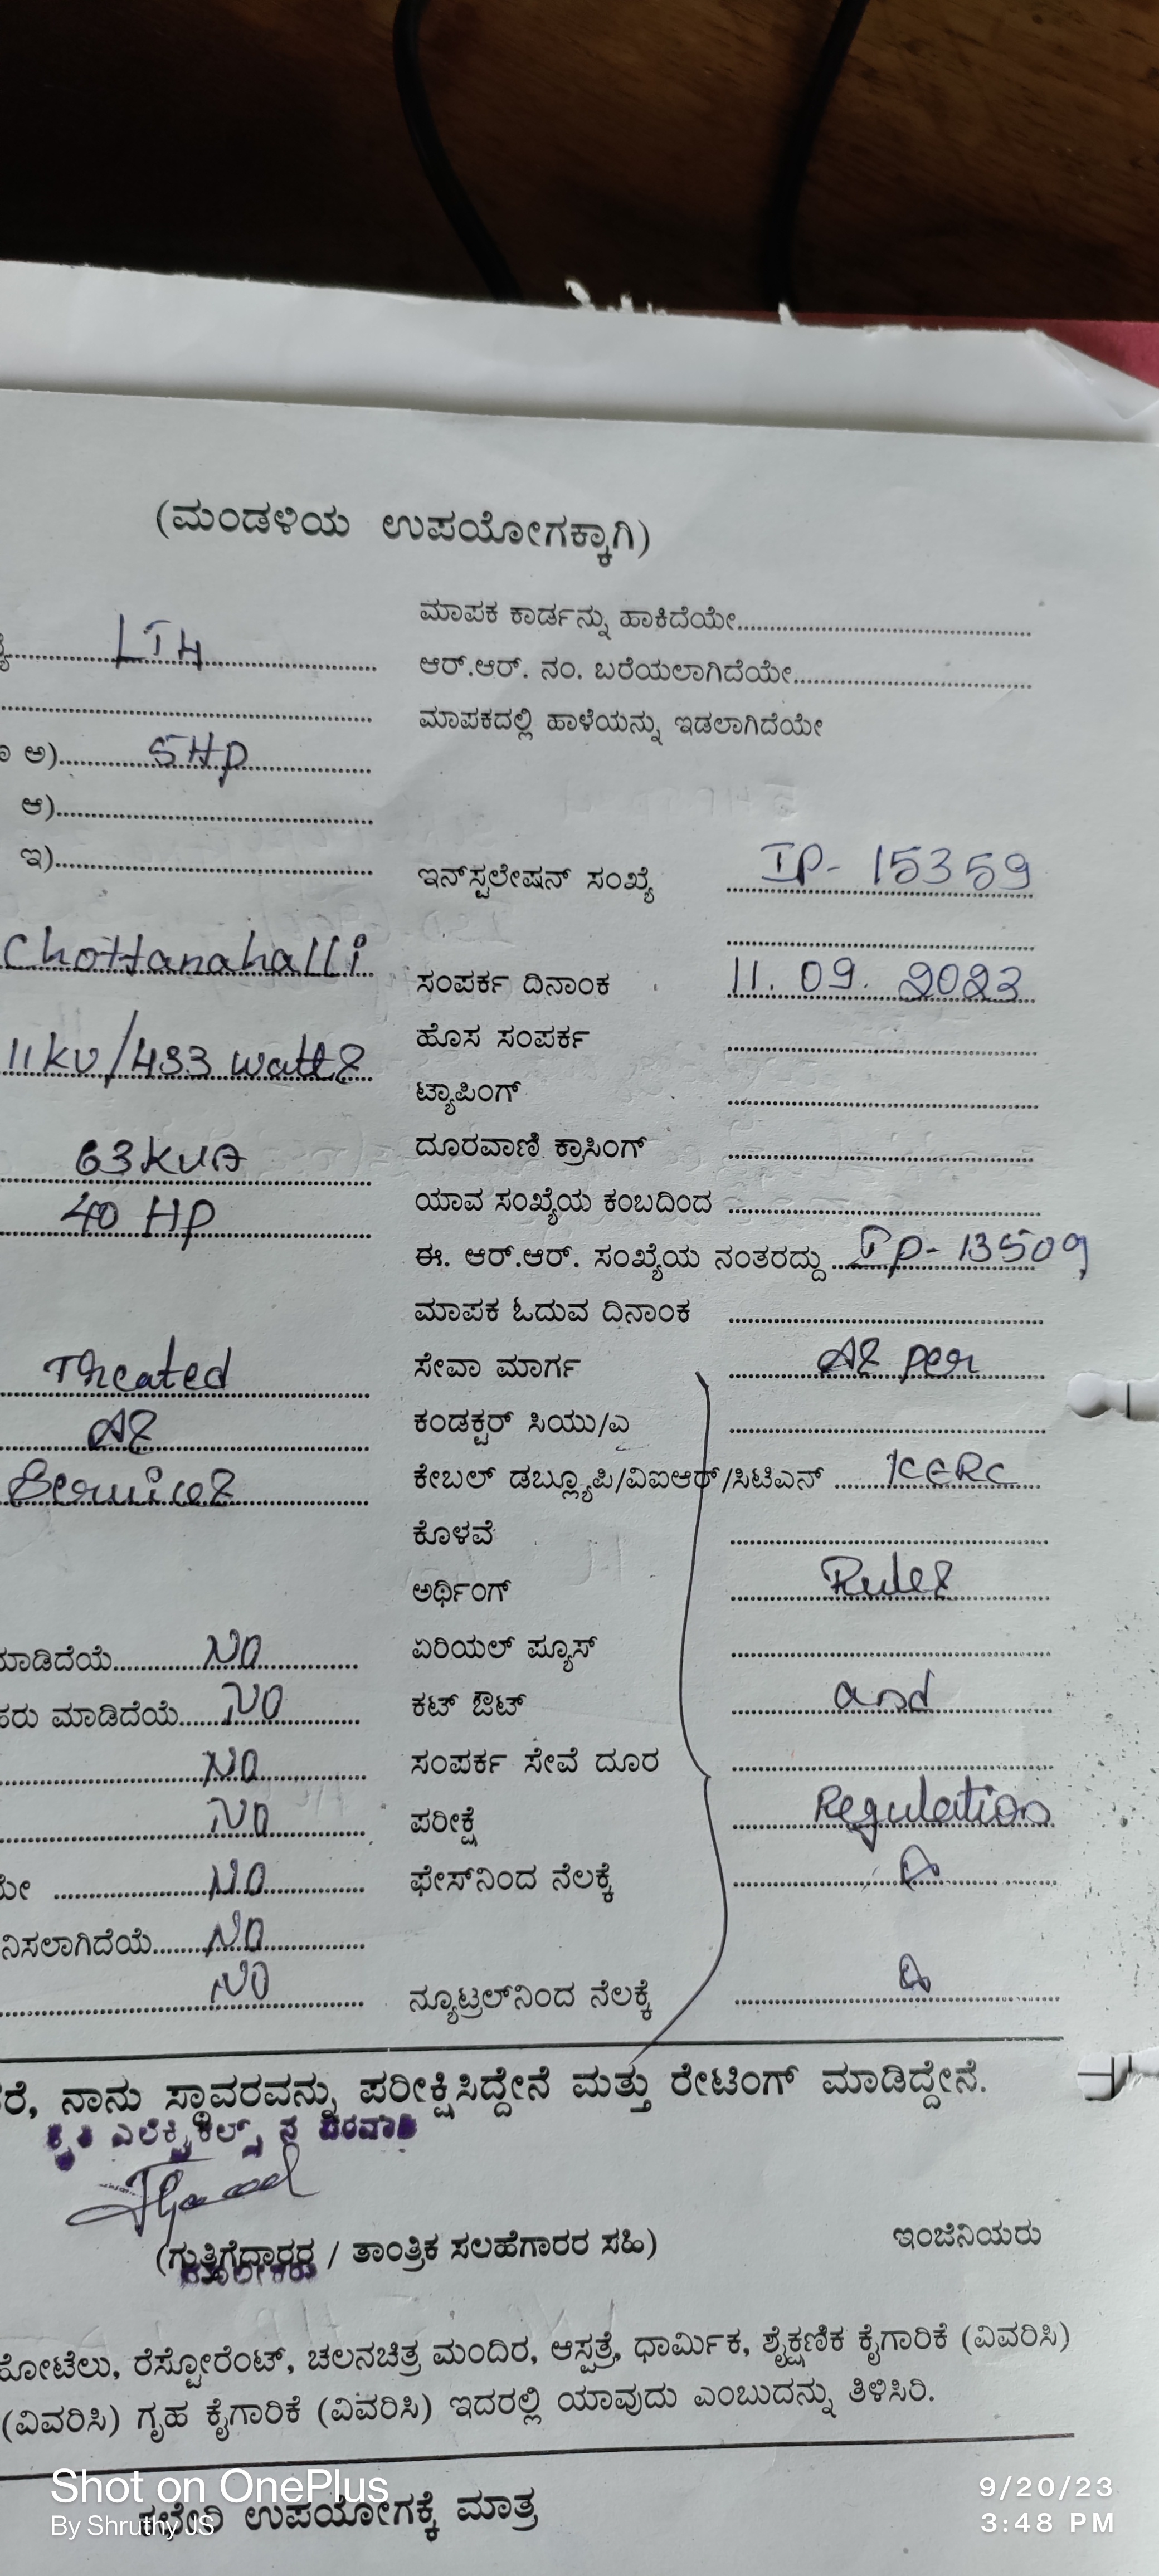 (ಮಂಡಳಿಯ ಉಪಯೋಗಕ್ಕಾಗಿ)
LT4
ಅ) 5HP
ಆ)
ಇ)
Chottanahalli
11kv/433 watts
63KVA
40 HP
Treated
As
Services
ಮಾಡಿದೆಯೆ NO
ಮಾಡಿದೆಯೆ NO
NO
NO
NO
NO
NO
ಮಾಪಕ ಕಾರ್ಡನ್ನು ಹಾಕಿದೆಯೇ
ಆರ್.ಆರ್. ನಂ. ಬರೆಯಲಾಗಿದೆಯೇ
ಮಾಪಕದಲ್ಲಿ ಹಾಳೆಯನ್ನು ಇಡಲಾಗಿದೆಯೇ
ಇನ್‌ಸ್ಟಲೇಷನ್ ಸಂಖ್ಯೆ IP- 15359
ಸಂಪರ್ಕ ದಿನಾಂಕ 11. 09. 2023
ಹೊಸ ಸಂಪರ್ಕ
ಟ್ಯಾಪಿಂಗ್
ದೂರವಾಣಿ ಕ್ರಾಸಿಂಗ್
ಯಾವ ಸಂಖ್ಯೆಯ ಕಂಬದಿಂದ
ಈ. ಆರ್.ಆರ್. ಸಂಖ್ಯೆಯ ನಂತರದ್ದು IP- 13509
ಮಾಪಕ ಓದುವ ದಿನಾಂಕ
ಸೇವಾ ಮಾರ್ಗ As per
ಕಂಡಕ್ಟರ್ ಸಿಯು/ಎ
ಕೇಬಲ್ ಡಬ್ಲ್ಯೂಪಿ/ವಿಐಆರ್/ಸಿಟಿಎಸ್ KERC
ಕೊಳವೆ
ಅರ್ಥಿಂಗ್ Rules
ಏರಿಯಲ್ ಪ್ಯೂಸ್
ಕಟ್ ಔಟ್ and
ಸಂಪರ್ಕ ಸೇವೆ ದೂರ
ಪರೀಕ್ಷೆ Regulation
ಫೇಸ್‌ನಿಂದ ನೆಲಕ್ಕೆ
ನ್ಯೂಟ್ರಲ್‌ನಿಂದ ನೆಲಕ್ಕೆ
ನಾನು ಸ್ಥಾವರವನ್ನು ಪರೀಕ್ಷಿಸಿದ್ದೇನೆ ಮತ್ತು ರೇಟಿಂಗ್ ಮಾಡಿದ್ದೇನೆ.
(ಗುತ್ತಿಗೆದಾರರ / ತಾಂತ್ರಿಕ ಸಲಹೆಗಾರರ ಸಹಿ) ಇಂಜಿನಿಯರು
ಹೋಟೆಲು, ರೆಸ್ಟೋರೆಂಟ್, ಚಲನಚಿತ್ರ ಮಂದಿರ, ಆಸ್ಪತ್ರೆ, ಧಾರ್ಮಿಕ, ಶೈಕ್ಷಣಿಕ ಕೈಗಾರಿಕೆ (ವಿವರಿಸಿ)
(ವಿವರಿಸಿ) ಗೃಹ ಕೈಗಾರಿಕೆ (ವಿವರಿಸಿ) ಇದರಲ್ಲಿ ಯಾವುದು ಎಂಬುದನ್ನು ತಿಳಿಸಿರಿ.
ಕಛೇರಿ ಉಪಯೋಗಕ್ಕೆ ಮಾತ್ರ
Shot on OnePlus
By Shruthy JS
9/20/23
3:48 PM